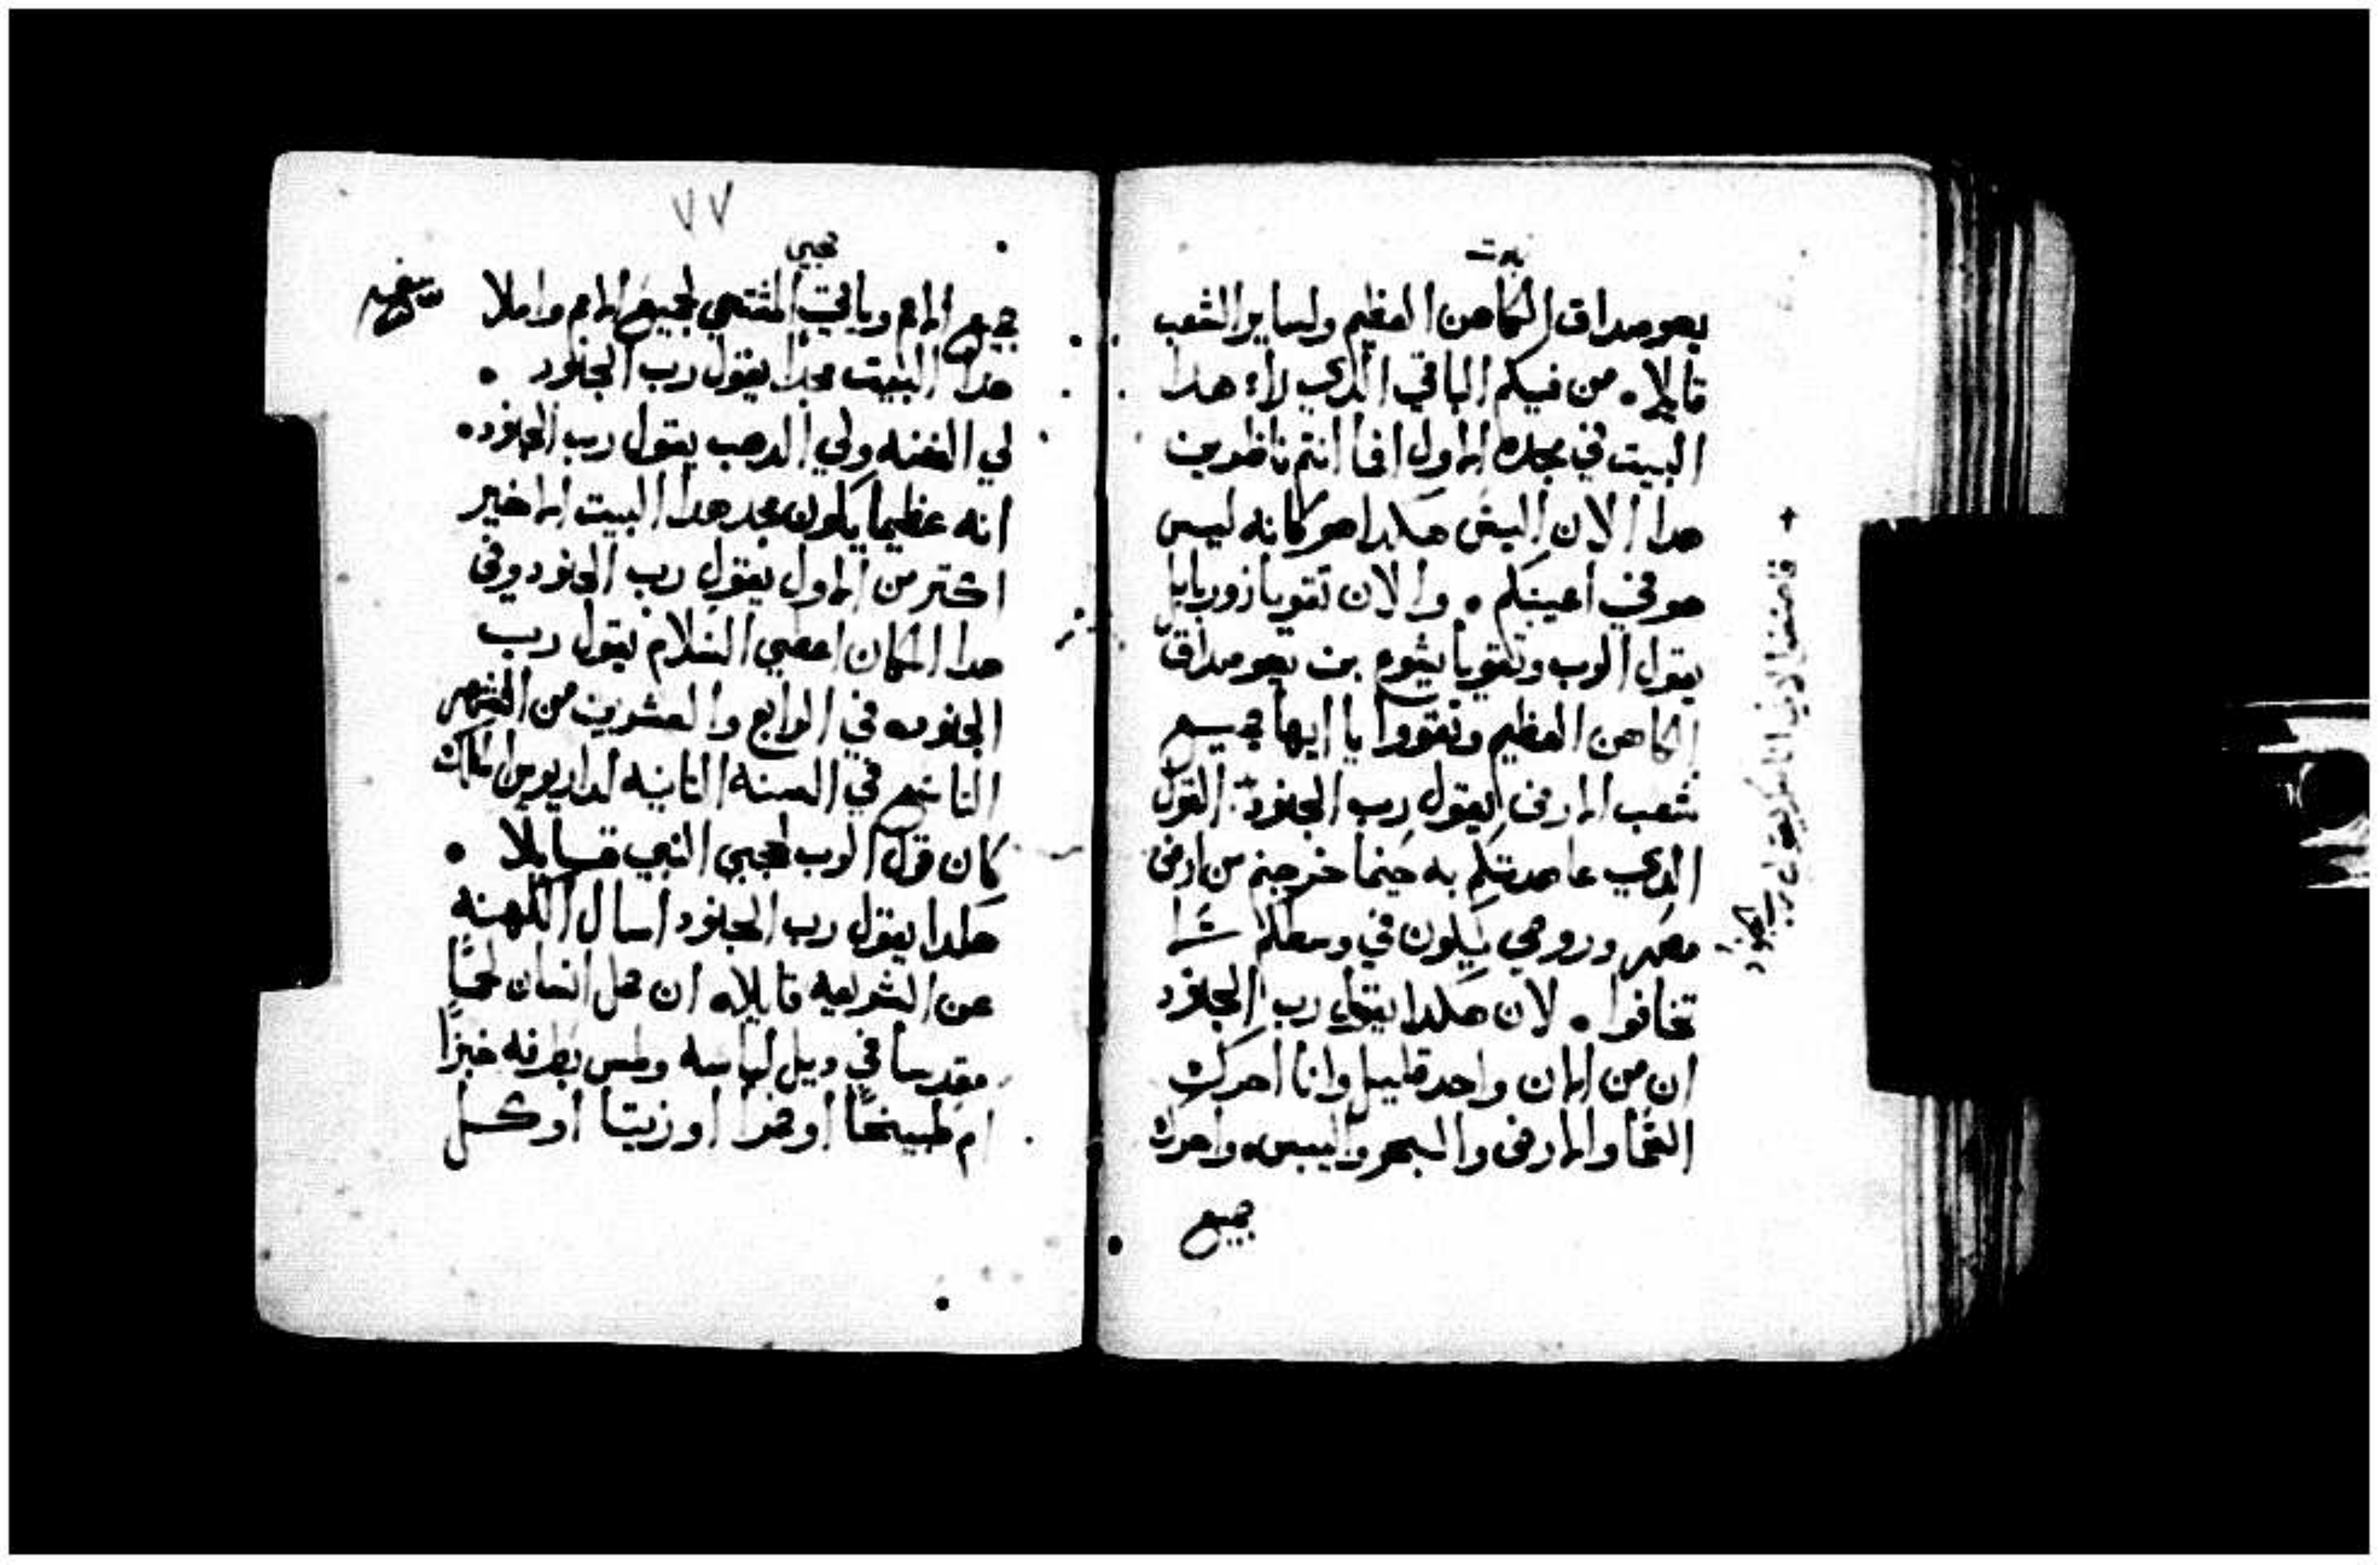 نبوت
يهوصداق الكاهن العظيم ولساير الشعب
قايلا. من فيكم الباقي الدي راء هدا
البيت في مجده الاول افما انتم ناظرون
هدا الان اليس هكدا هو كانه ليس
هو في اعينكم . والان تقويا زوربابل
يقول الرب وتقويا يشوع بن يهوصداق
الكاهن العظيم وتقووا يا ايها جميع
شعب الارض يقول رب الجنود: القول
الدي عاهدتكم به حينما خرجتم من ارض
مصر وروحي يكون في وسطكم لا
تخافوا . لان هكدا يقول رب الجنود
ان من الان واحد قليل وانا احرك
السما والارض والبحر واليبس واحرك
جميع
+ فاصنعوا لاني انا معكم يقول رب الجنود
٧٧
حجي
جميع الامم وياتي المشتهي لجميع الامم واملا
هدا البيت مجدا يقول رب الجنود .
لي الفضه ولي الدهب يقول رب الجنود.
انه عظيما يكون مجد هدا البيت الاخير
اكتر من الاول يقول رب الجنود وفي
هدا المكان اعطي السلام يقول رب
الجنود. في الرابع والعشرين من الشهر
التاسع في السنه التانيه لداريوس الملك
كان قول الرب لحجي النبي قايلا .
هكدا يقول رب الجنود اسال الكهنه
عن الشريعه قايلا. ان حمل انسان لحمًا
مقدسا في ديل لباسه ولمس بطرفه خبزًا
ام طبيخًا او خمرا او زيتا او كل